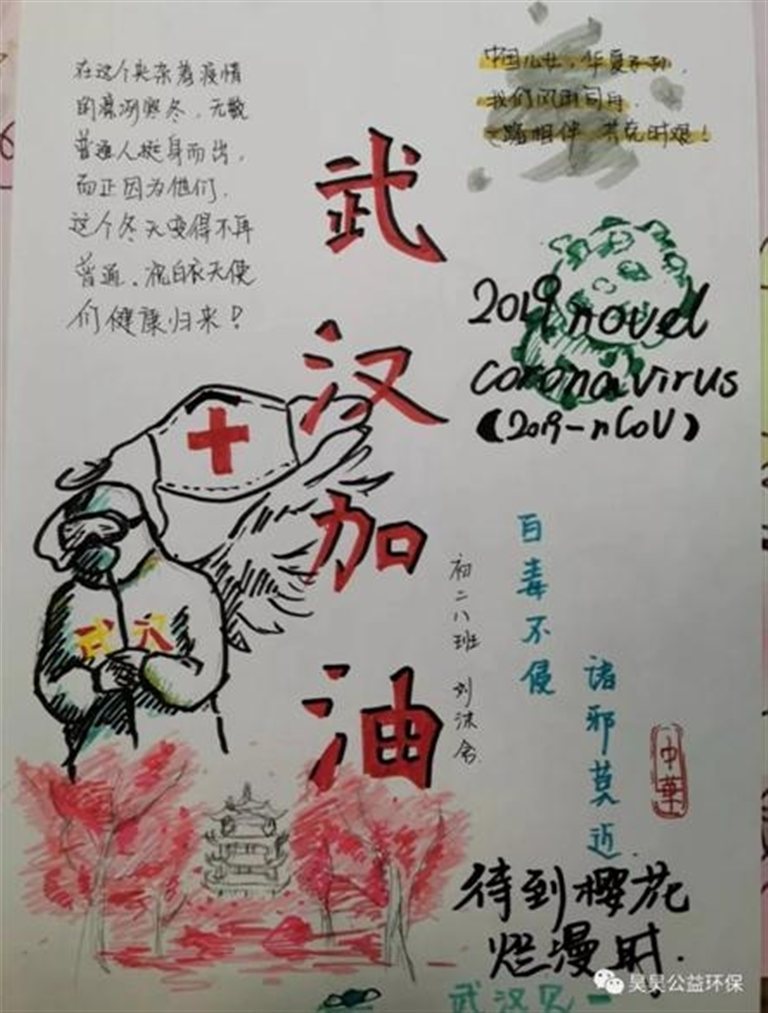 在这个夹杂着疫情
的凛冽寒冬，无数
普通人挺身而出，
而正因为他们，
这个冬天变得不再
普通。祝白衣天使
们健康归来！
中国儿女，华夏
我们风雨同舟，
一路相伴 共克时艰！
武汉加油
2019 novel
coronavirus
(2019-nCoV)
武汉
初二八班 刘沫含
百毒不侵
诸邪莫近
中華
待到樱花
烂漫时.
武汉见
昊昊公益环保